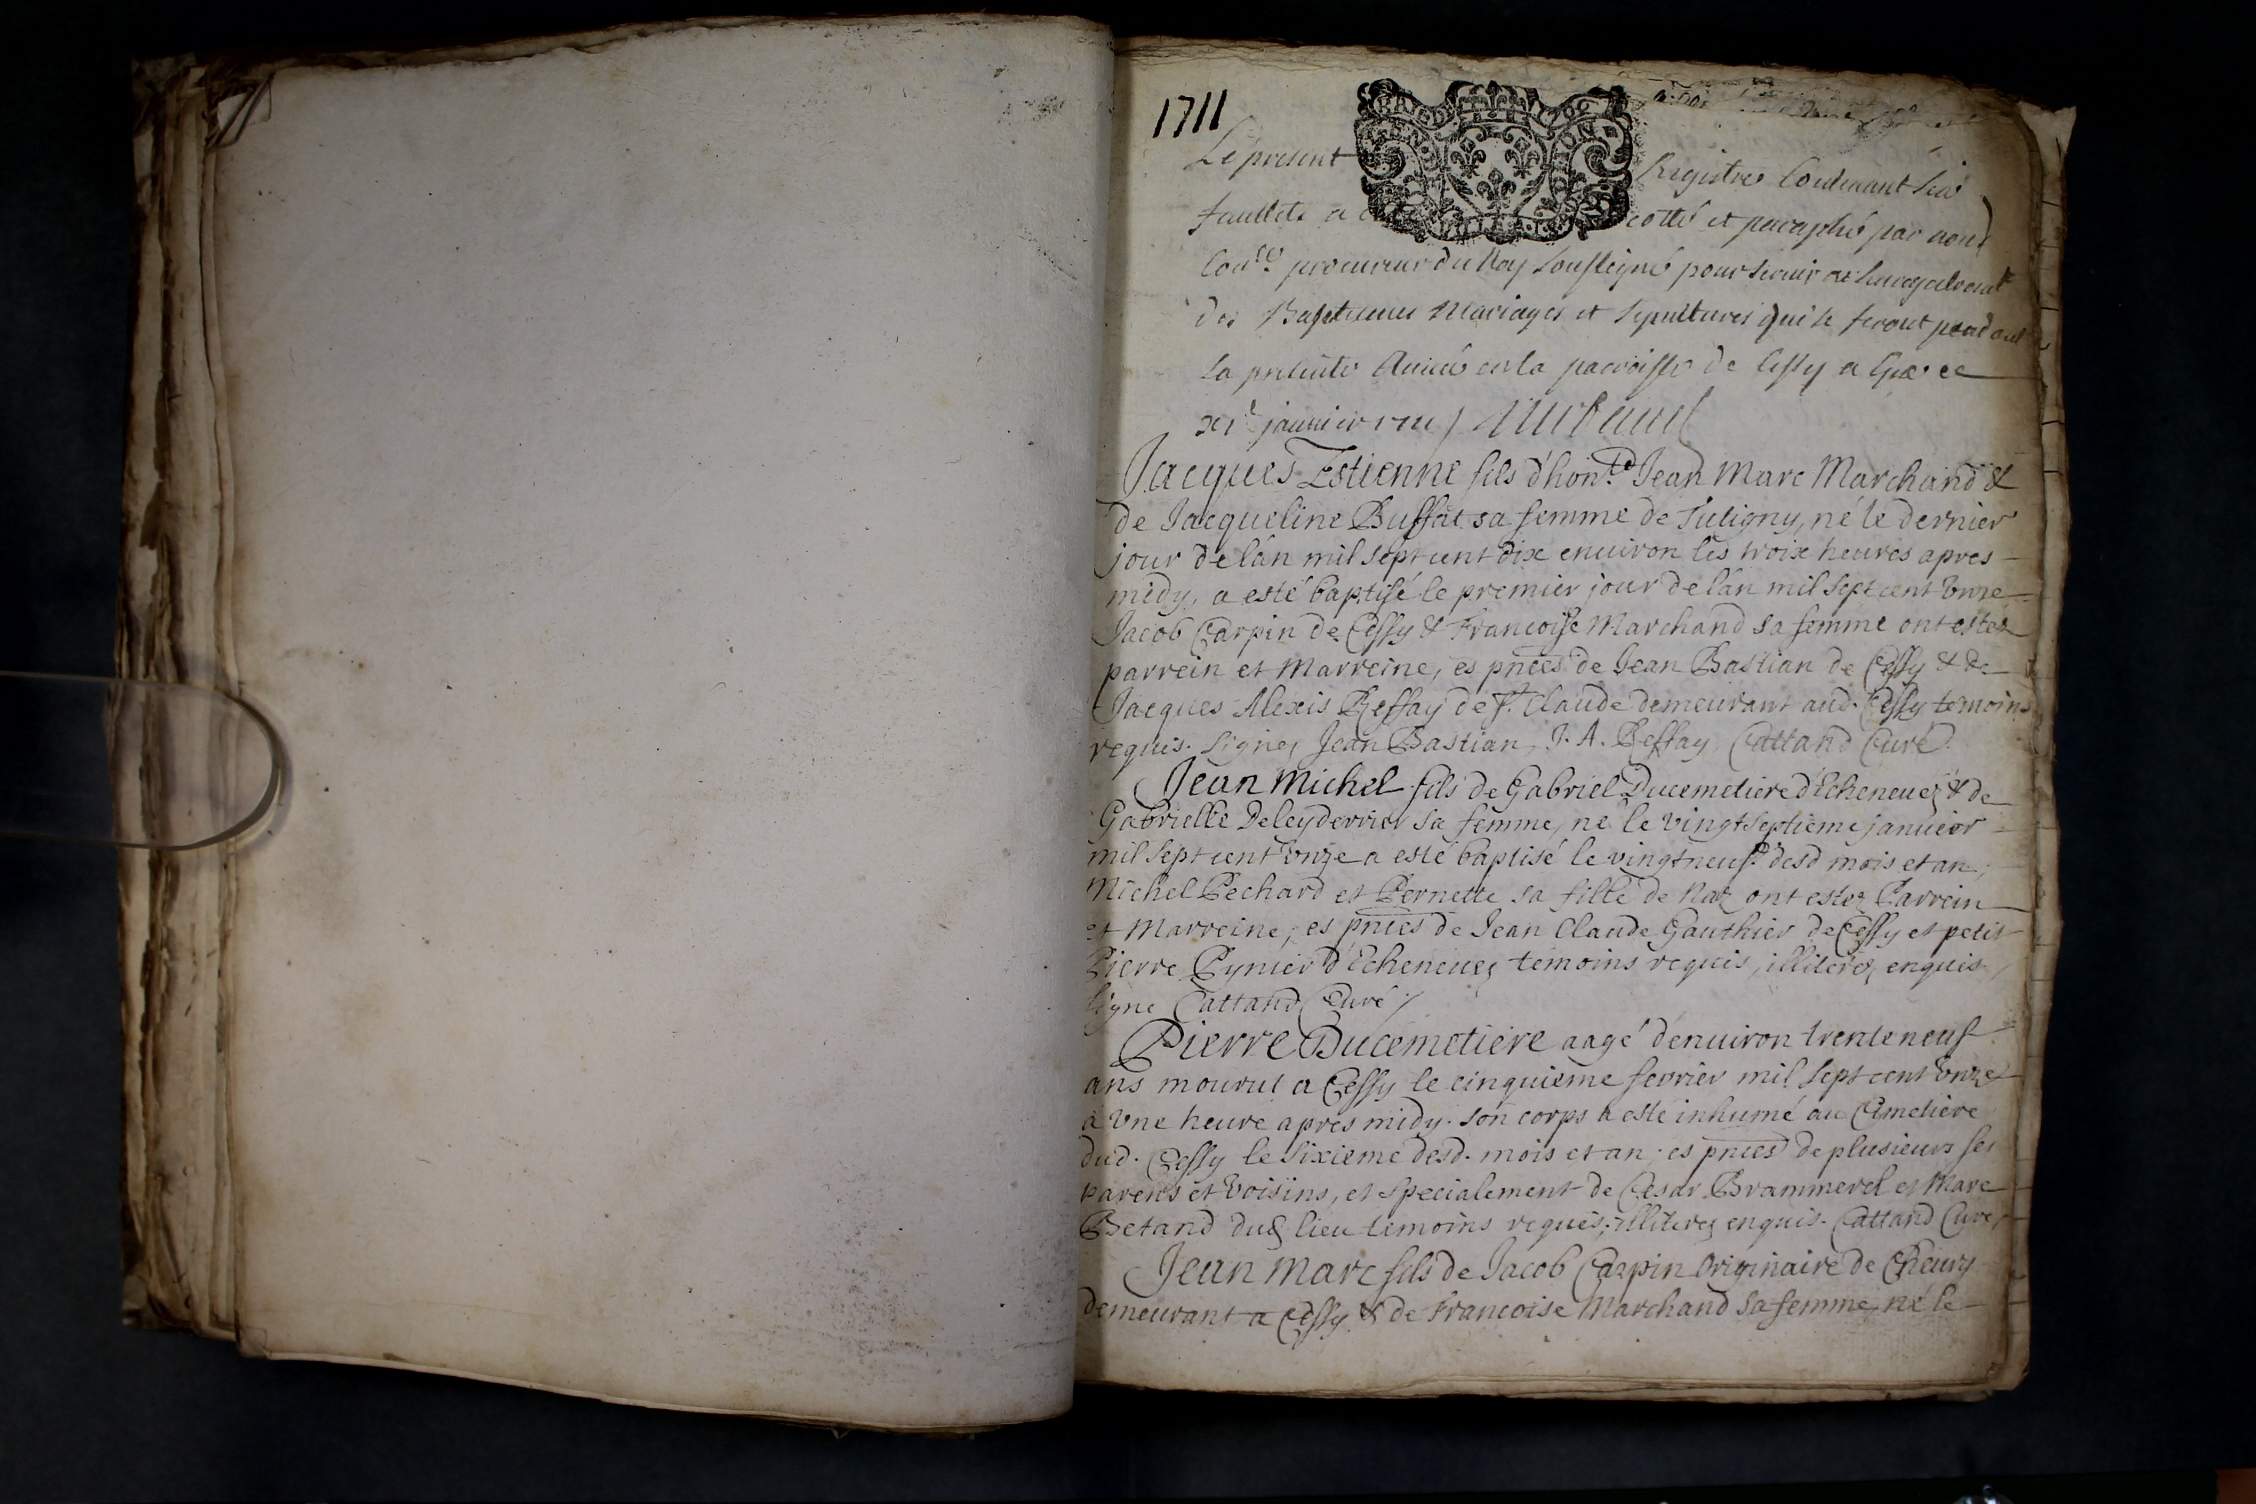 1711
Le present Registre Contenant six
feuillets a esté cotté et paraphé par nous
Con.er procureur du Roy soussigné pour servir a l'enregistrement
des Baptemes Mariages et sepultures qui se feront pendant
la presente Année en la parroisse de Cessy a Gex ce
xi.e janvier 1711
Jacques Estienne fils d'hon.ble Jean Marc Marchand &
de Jacqueline Buffat sa femme de Sutigny, né le dernier
jour de l'an mil sept cent dix environ les troix heures apres
midy, a esté baptisé le premier jour de l'an mil sept cent vnze
Jacob Carpin de Cessy & Francoise Marchand sa femme ont estez
parrein et Marreine, es pnces de Jean Bastian de Cessy & de
Jacques Alexis Reffay de S.t Claude demeurant aud. Cessy temoins
requis. Signez Jean Bastian, J. A. Reffay Cattand Curé.
Jean Michel fils de Gabriel Ducemetiere d'Echenevez & de
Gabrielle Deleyderrier sa femme, né le vingtseptieme janvier
mil sept cent vnze a esté baptisé le vingtneuf.e desd mois et an;
Michel Pechard et Pernette sa fille de Naz ont estez Parrein
et Marreine; es pnces de Jean Claude Gauthier de Cessy et petit
Pierre Pynier d'Echenevez temoins requis, illiterez enquis,
signé Cattand Curé /
Pierre Ducemetiere aagé d'enuiron trente neuf
ans mourut a Cessy le cinquieme fevrier mil sept cent vnze
à vne heure apres midy. son corps a esté inhumé au Cimetiere
dud. Cessy le sixieme desd. mois et an; es pnces de plusieurs ses
parens et voisins, et specialement de Cesar Brammerel et Marc
Betand dud lieu temoins requis; illiterez enquis. Cattand Curé
Jean Marc fils de Jacob Carpin Originaire de Cheury
demeurant a Cessy & de Francoise Marchand sa femme, né le